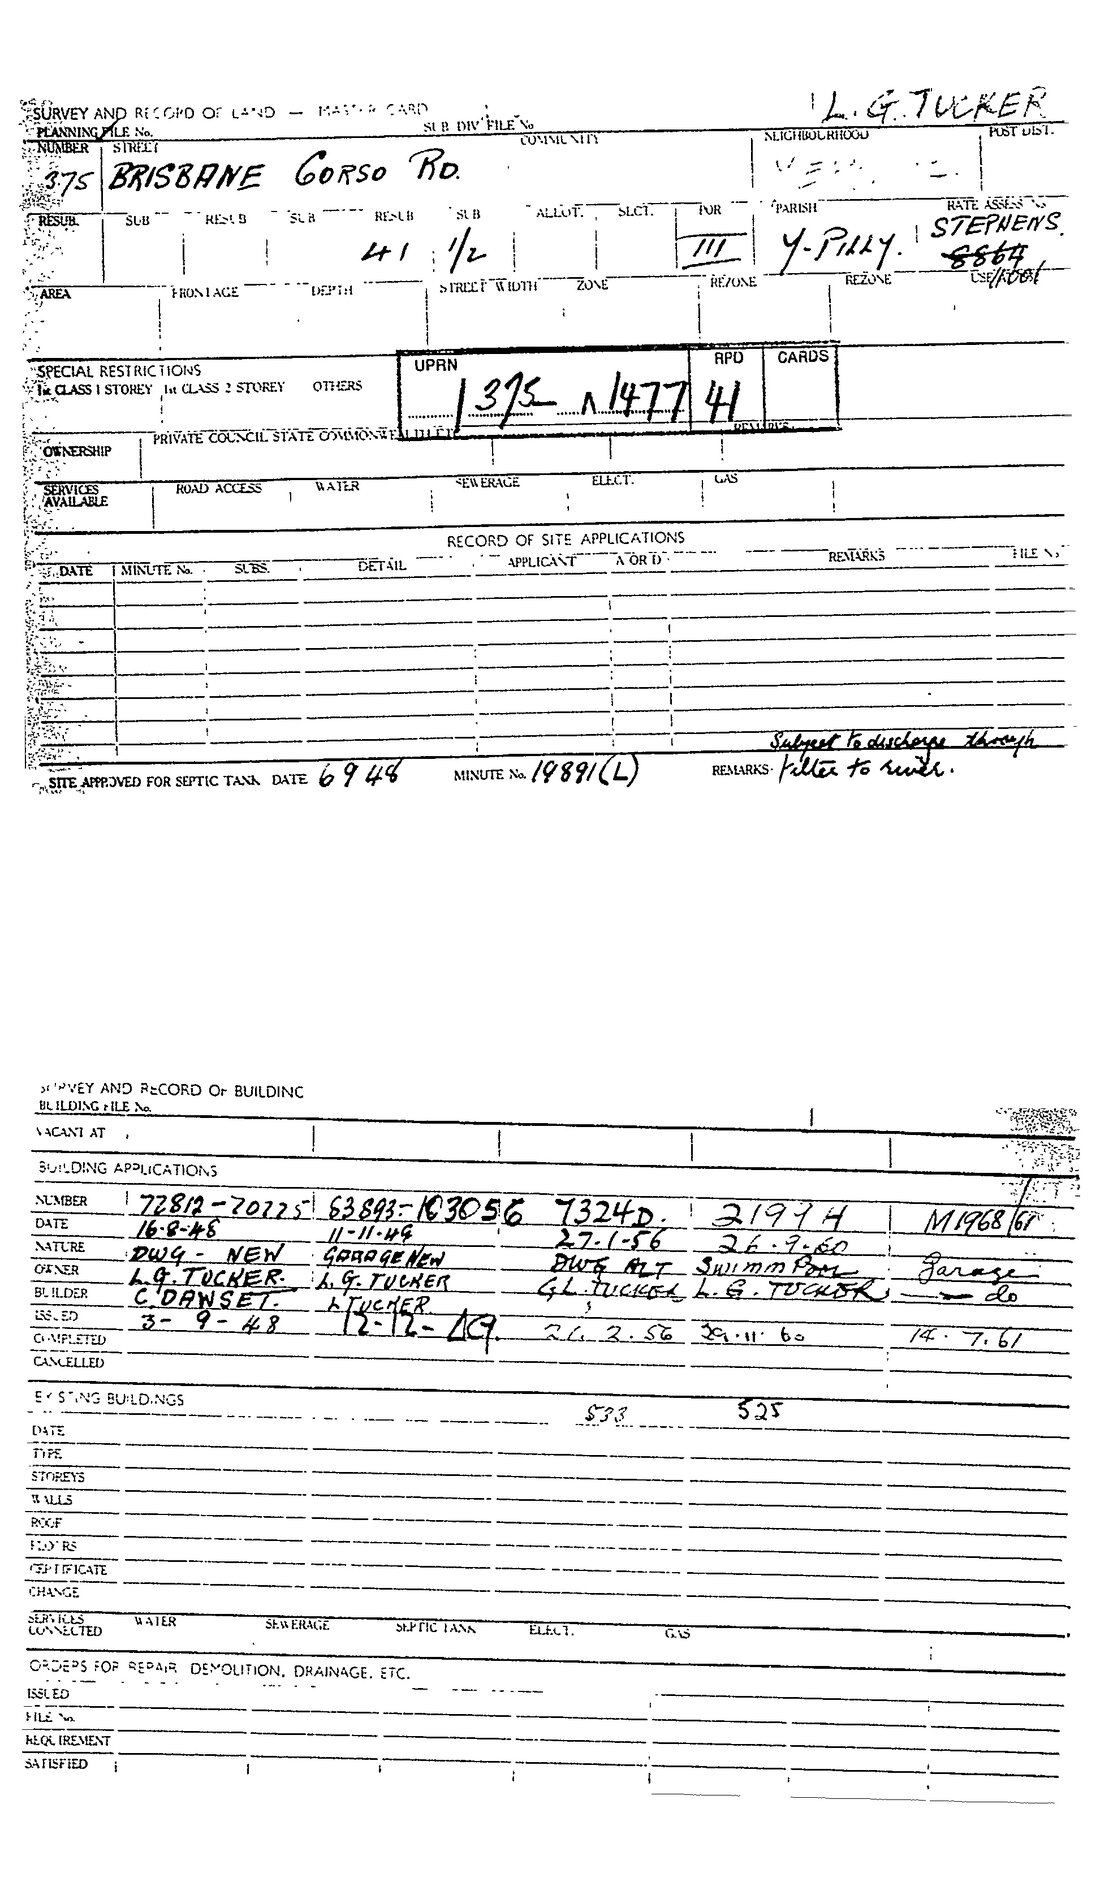 L. G. TUCKER
SURVEY AND RECORD OF LAND — MASTER CARD
PLANNING FILE No. SUB DIV FILE No
NUMBER STREET COMMUNITY NEIGHBOURHOOD POST DIST.
375 BRISBANE CORSO RD.
RESUB. SUB RESUB SUB RESUB SUB ALLOT. SECT. POR PARISH RATE ASSESS No
41 1/2 III Y-PILLY. STEPHENS.
8864
AREA FRONTAGE DEPTH STREET WIDTH ZONE REZONE REZONE USE
SPECIAL RESTRICTIONS UPRN RPD CARDS
1st CLASS 1 STOREY 1st CLASS 2 STOREY OTHERS
375 1477 41
OWNERSHIP PRIVATE COUNCIL STATE COMMONWEALTH ETC REMARKS
SERVICES AVAILABLE ROAD ACCESS WATER SEWERAGE ELECT. GAS
RECORD OF SITE APPLICATIONS
DATE MINUTE No. SUBS. DETAIL APPLICANT A OR D REMARKS FILE No
Subject to discharge through
SITE APPROVED FOR SEPTIC TANK DATE 6 9 48 MINUTE No. 19891(L) REMARKS filter to river.
SURVEY AND RECORD OF BUILDING
BUILDING FILE No.
VACANT AT
BUILDING APPLICATIONS
NUMBER 72812-70225 63893-103056 7324D. 21994 M1968/61
DATE 16-8-48 11-11-49 27-1-56 26.9.60
NATURE DWG - NEW GARAGE NEW DWG ALT SWIMM POOL Garage
OWNER L.G. TUCKER. L. G. TUCKER G L. TUCKER L. G. TUCKER — do
BUILDER C. DAWSET. L TUCKER
ISSUED 3-9-48 12-12-49. 2.56 29.11.60 14.7.61
COMPLETED
CANCELLED
EXISTING BUILDINGS 533 525
DATE
TYPE
STOREYS
WALLS
ROOF
FLOORS
CERTIFICATE
CHANGE
SERVICES CONNECTED WATER SEWERAGE SEPTIC TANK ELECT. GAS
ORDERS FOR REPAIR, DEMOLITION, DRAINAGE, ETC.
ISSUED
FILE No.
REQUIREMENT
SATISFIED